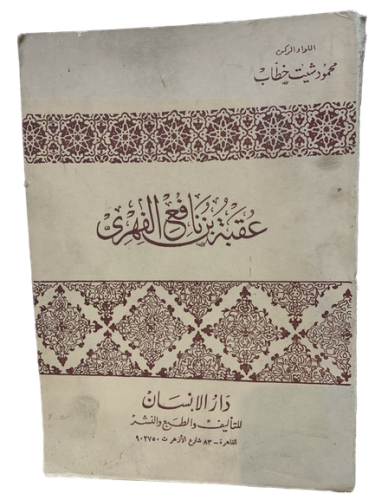 اللواء الركن
محمود شيت خطاب
عقبة بن نافع الفهرى
دار الإنسان
للتأليف والطبع والنشر
القاهرة - ٨٣ شارع الأزهر ت ٩٠٢٧٥٠